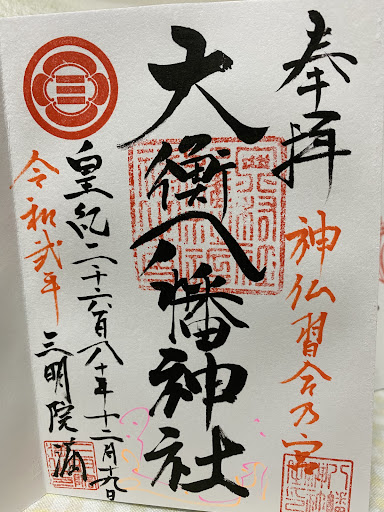 奉拝
神仏習合乃宮
大衡八幡神社
皇紀二千六百八十年十二月
令和弐年
三明院